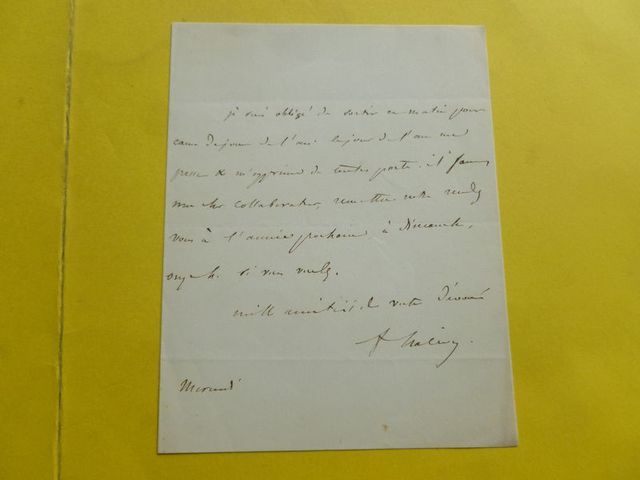 je suis obligé de sortir ce matin pour
cause de jour de l'an. le jour de l'an me
presse & m'opprime de toutes parts. il faut,
mon cher collaborateur, remettre notre rendez
vous à l'année prochaine à Dimanche,
onze h. si vous voulez.
mille amitiés de votre dévoué
Mercredi